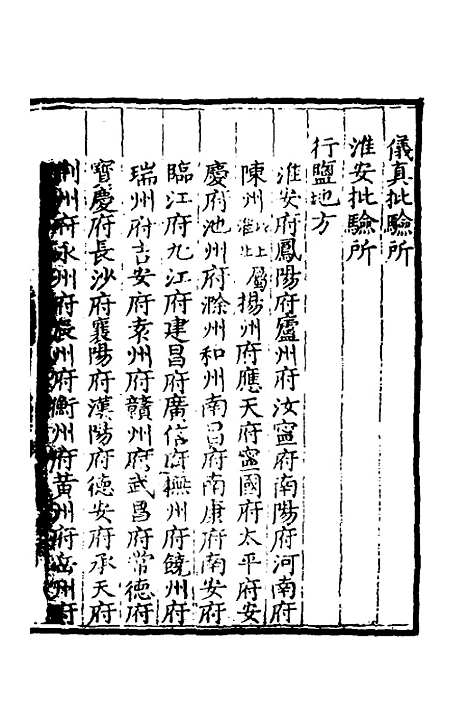 儀真批驗所
淮安批驗所
行鹽地方
淮安府鳳陽府廬州府汝寧府南陽府河南府
陳州以上屬淮北揚州府應天府寧國府太平府安
慶府池州府滁州和州南昌府南康府南安府
臨江府九江府建昌府廣信府撫州府饒州府
瑞州府吉安府袁州府贛州府武昌府常德府
寶慶府長沙府襄陽府漢陽府德安府承天府
荆州府永州府辰州府衡州府黃州府岳州府